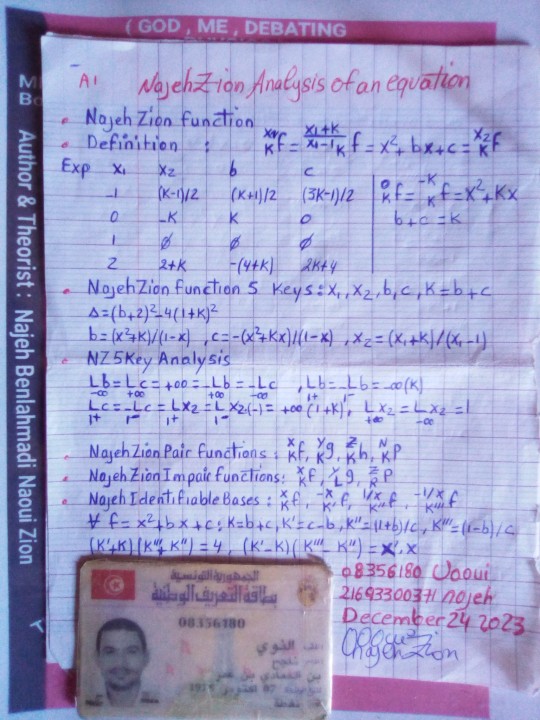 ( GOD , ME , DEBATING
Author & Theorist : Najeh Benlahmadi Naoui Zion
A1 NajehZion Analysis of an equation
• NajehZion function
• Definition : ˣ¹ₖf = ⁽ˣ¹⁺ᴷ⁾ᐟ⁽ˣ¹⁻¹⁾ₖf = x²+ bx+c = ˣ²ₖf
Exp x₁ x₂ b c
-1 (K-1)/2 (K+1)/2 (3K-1)/2
⁰ₖf = ⁻ᴷₖf = x²+Kx
0 -K K 0
b+c = K
1 ∅ ∅ ∅
2 2+K -(4+K) 2K+4
• NajehZion function 5 Keys : x₁, x₂, b, c, K = b+c
Δ=(b+2)²-4(1+K)²
b=(x²+K)/(1-x) , c=-(x²+Kx)/(1-x) , x₂=(x₁+K)/(x₁-1)
• NZ 5Key Analysis
Lb = Lc = +∞ = -Lb = -Lc , Lb = -Lb = -∞(K)
-∞ +∞ +∞ -∞ 1+ 1-
Lc = -Lc = Lx₂ = Lx₂(-) = +∞ (1+K), Lx₂ = Lx₂ = 1
1+ 1- 1+ 1- +∞ -∞
• NajehZion Pair functions : ˣₖf, ʸₖg, ᶻₖh, ᴺₖP
• NajehZion Impair functions: ˣₖf, ʸ_L g, ᶻ_R P
• Najeh Identifiable Bases : ˣₖf, ⁻ˣ_K' f, ¹ᐟˣ_K'' f, ⁻¹ᐟˣ_K''' f
∀ f = x²+bx+c : K=b+c, K'=c-b, K''=(1+b)/c, K'''=(1-b)/c
(K'+K)(K'''+K'') = 4 , (K'-K)(K'''-K'') = x', x
08356180 Uaoui
21693300371 najeh
December 24 2023
NajehZion
الجمهورية التونسية
بطاقة التعريف الوطنية
08356180